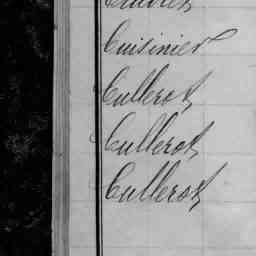 Cuisinier
Cullerot
Cullerot
Cullerot